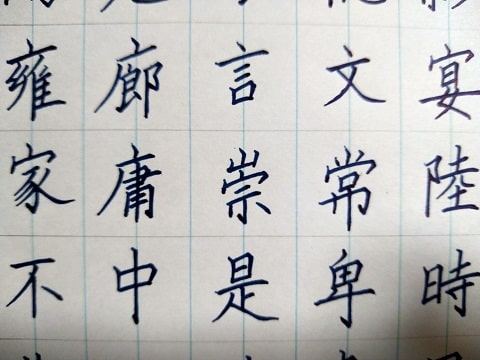 雍廊言文宴
家庸崇常陸
不中是卑時